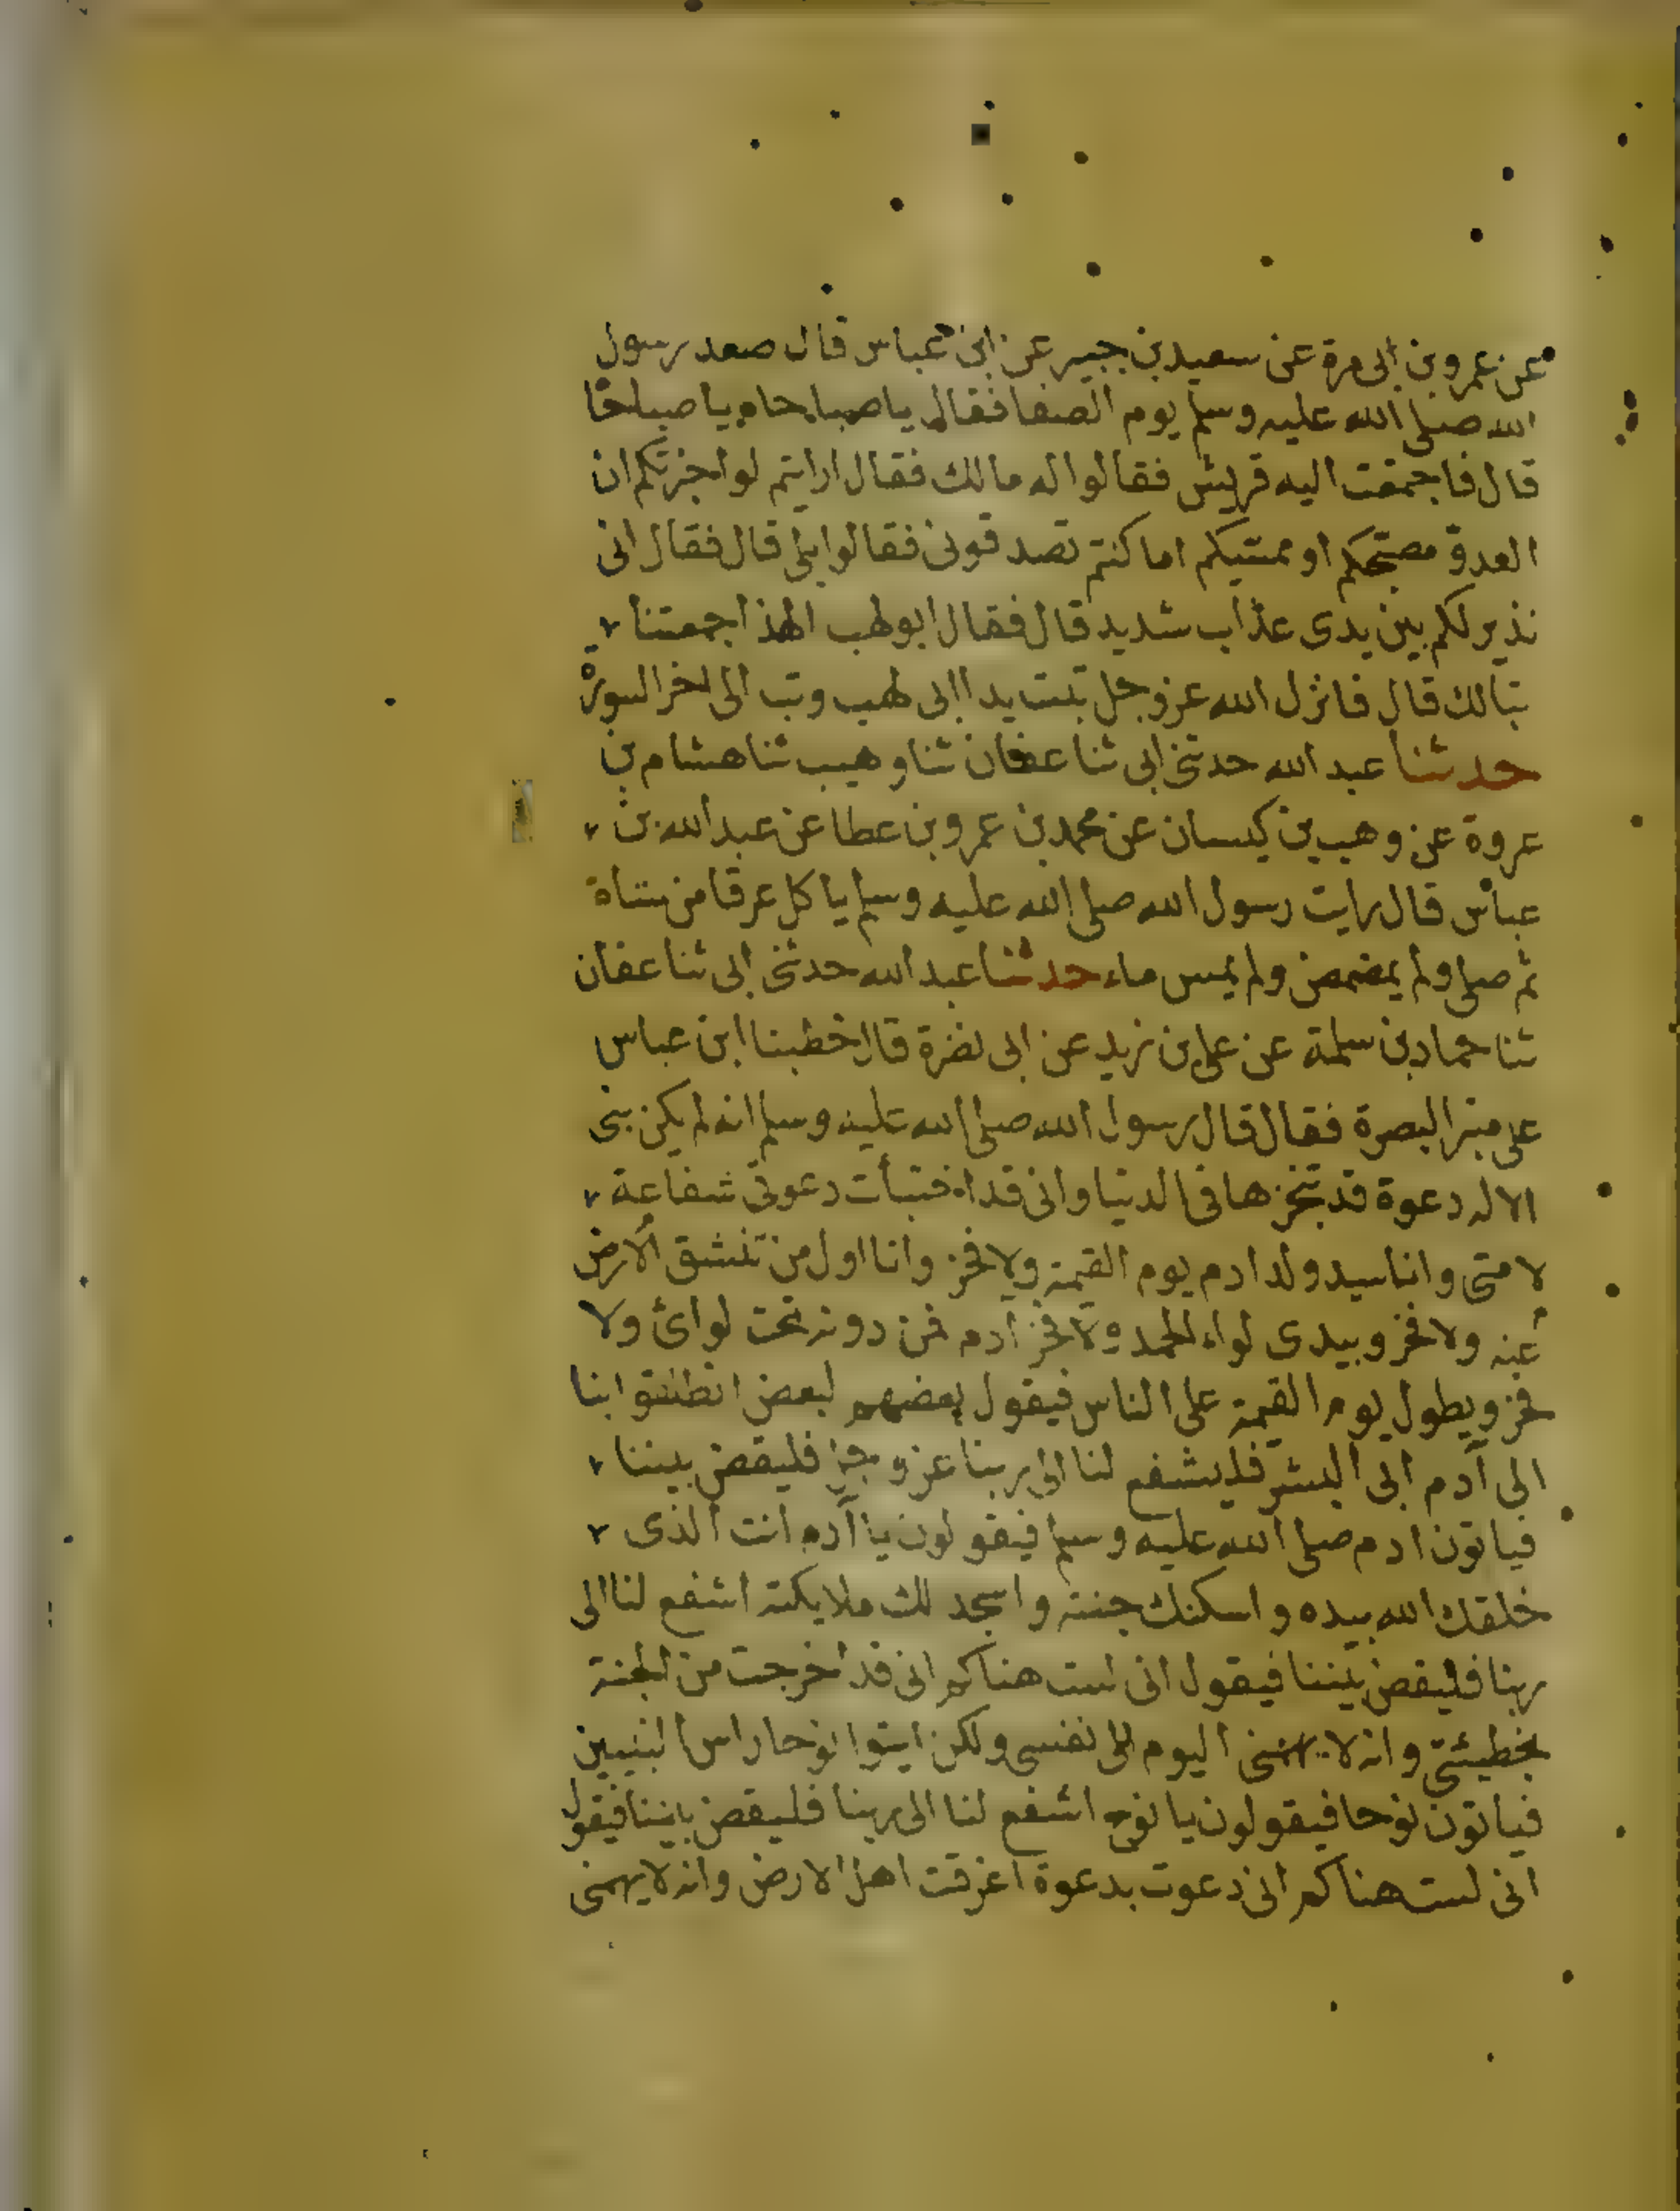 عن عمرو بن ابى مرة عن سعيد بن جبير عن ابن عباس قال صعد رسول
الله صلى الله عليه وسلم يوم الصفا فقال يا صباحاه يا صباحاه
قال فاجمقت اليه قريش فقالوا له مالك فقال ارايتم لو اخبرتكم ان
العدو مصبحكم او ممسيكم اما كنتم تصدقونى فقالوا بلى قال فقال انى
نذير لكم بين يدى عذاب شديد قال فقال ابو لهب الهذا جمعتنا
تبالك قال فانزل الله عز وجل تبت يدا ابى لهب وتب الى اخر السورة
حدثنا عبد الله حدثنى ابى ثنا عفان ثنا وهيب ثنا هشام بن
عروة عن وهب بن كيسان عن محمد بن عمرو بن عطا عن عبد الله بن
عباس قال رايت رسول الله صلى الله عليه وسلم ياكل عرقا من شاة
ثم صلى ولم يمضمض ولم يمس ماء حدثنا عبد الله حدثنى ابى ثنا عفان
ثنا حماد بن سلمة عن على بن زيد عن ابى نضرة قال خطبنا ابن عباس
على منبر البصرة فقال قال رسول الله صلى الله عليه وسلم انه لم يكن نبى
الا له دعوة قد تنجزها فى الدنيا وانى قد اختبأت دعوتى شفاعة
لامتى وانا سيد ولد ادم يوم القيمة ولا فخر وانا اول من تنشق الارض
عنه ولا فخر وبيدى لواء الحمد ولا فخر آدم فمن دونه تحت لوائ ولا
فخر ويطول يوم القيمة على الناس فيقول بعضهم لبعض انطلقوا بنا
الى آدم ابى البشر فليشفع لنا الى ربنا عز وجل فليقض بيننا
فياتون ادم صلى الله عليه وسلم فيقولون يا آدم انت الذى
خلقك الله بيده واسكنك جنته واسجد لك ملايكته اشفع لنا الى
ربنا فليقض بيننا فيقول انى لست هناكم انى قد اخرجت من الجنة
بخطيئتى وانه لا يهمنى اليوم الا نفسى ولكن ايتوا نوحا راس النبيين
فياتون نوحا فيقولون يا نوح اشفع لنا الى ربنا فليقض بيننا فيقول
انى لست هناكم انى دعوت بدعوة اغرقت اهل الارض وانه لا يهمنى